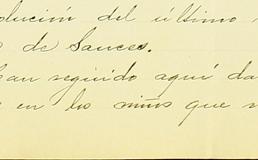 olución del último
de Sauces.
han seguido aquí da
en los niños que